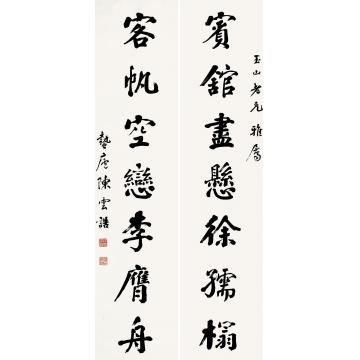 玉山老兄雅屬
賓舘盡懸徐孺榻
客帆空戀李膺舟
蟄庵陳雲誥